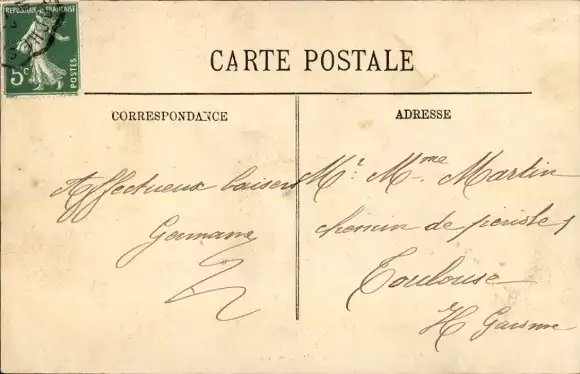 REPUBLIQUE FRANÇAISE
5c
POSTES
CARTE POSTALE
CORRESPONDANCE
ADRESSE
Affectueux baisers
Germaine
Mr. Mme Martin
chemin de
Toulouse
Hte Garonne